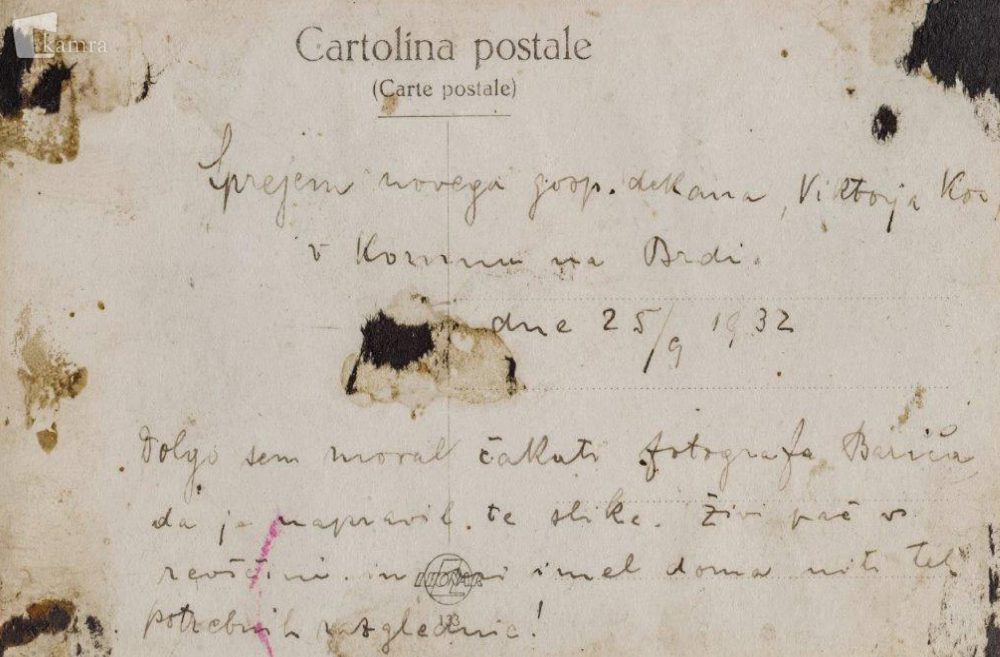 kamra
Cartolina postale
(Carte postale)
Sprejem novega gosp. dekana, Viktorja
v Kominu na Brdi.
dne 25/9 1932
Dolgo sem moral čakati fotografa
da je napravil te slike. Živi pač v
revščini in ni imel doma niti teh
potrebnih razglednic!